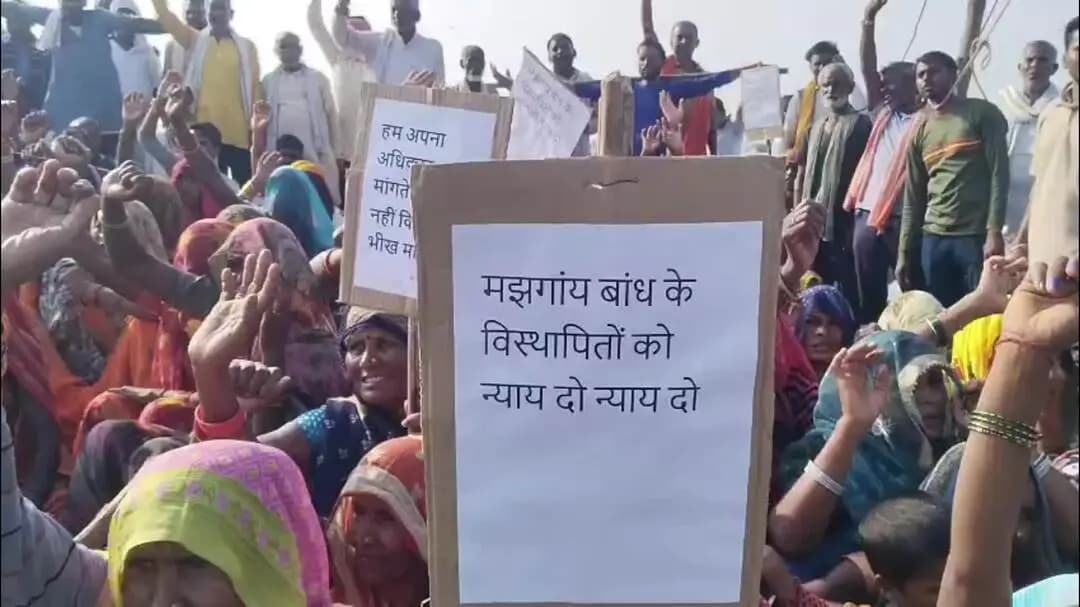 हम अपना
मांगते
नहीं
भीख
मझगांय बांध के
विस्थापितों को
न्याय दो न्याय दो